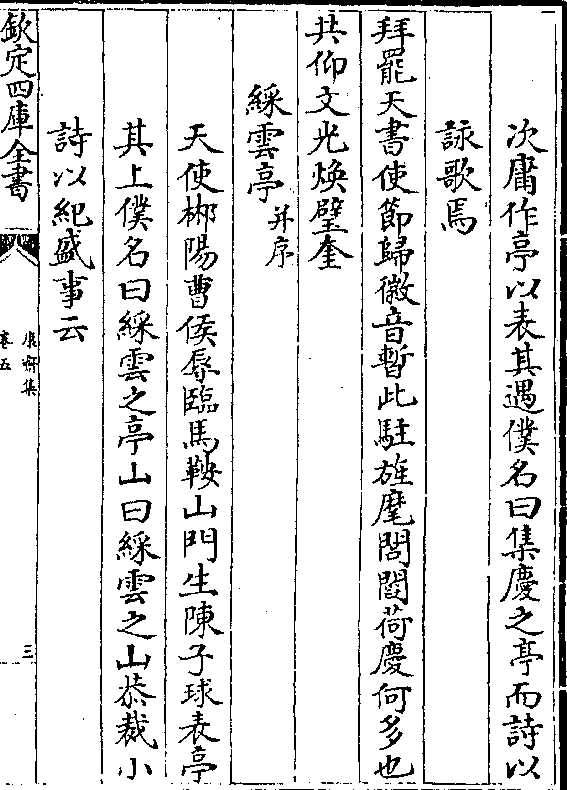 次庸作亭以表其遇僕名曰集慶之亭而詩以
詠歌焉
拜罷天書使節歸徽音暫此駐旌麾閭閻荷慶何多也
共仰文光煥壁奎
綵雲亭并序
天使郴陽曹侯辱臨馬鞍山門生陳子球表亭
其上僕名曰綵雲之亭山曰綵雲之山恭裁小
詩以紀盛事云
欽定四庫全書
康齋集
卷五
三